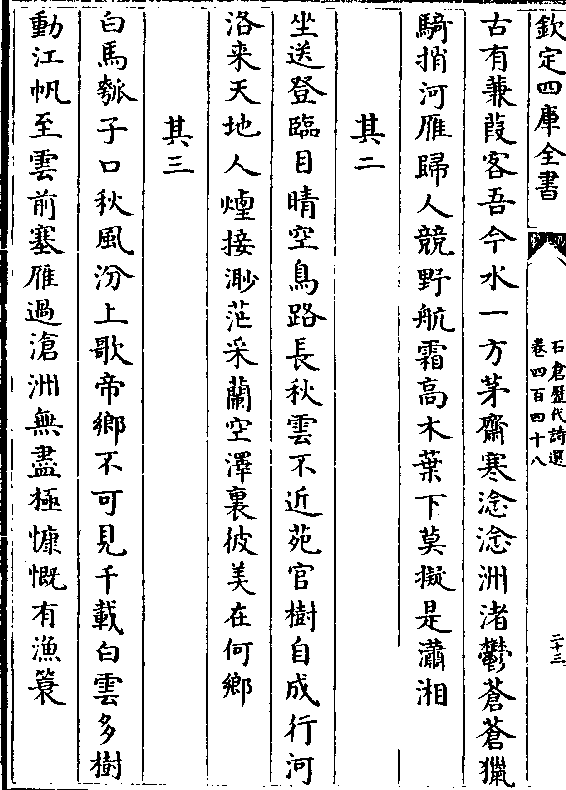 欽定四庫全書
石倉歴代詩選
卷四百四十八
二十三
古有蒹葭客吾今水一方茅齋寒淰淰洲渚鬱蒼蒼獵
騎捎河雁歸人競野航霜高木葉下莫擬是瀟湘
其二
坐送登臨目晴空鳥路長秋雲不近苑官樹自成行河
洛来天地人煙接渺茫采蘭空澤裏彼美在何鄉
其三
白馬瓠子口秋風汾上歌帝鄉不可見千載白雲多樹
動江帆至雲前塞雁過滄洲無盡極慷慨有漁簑